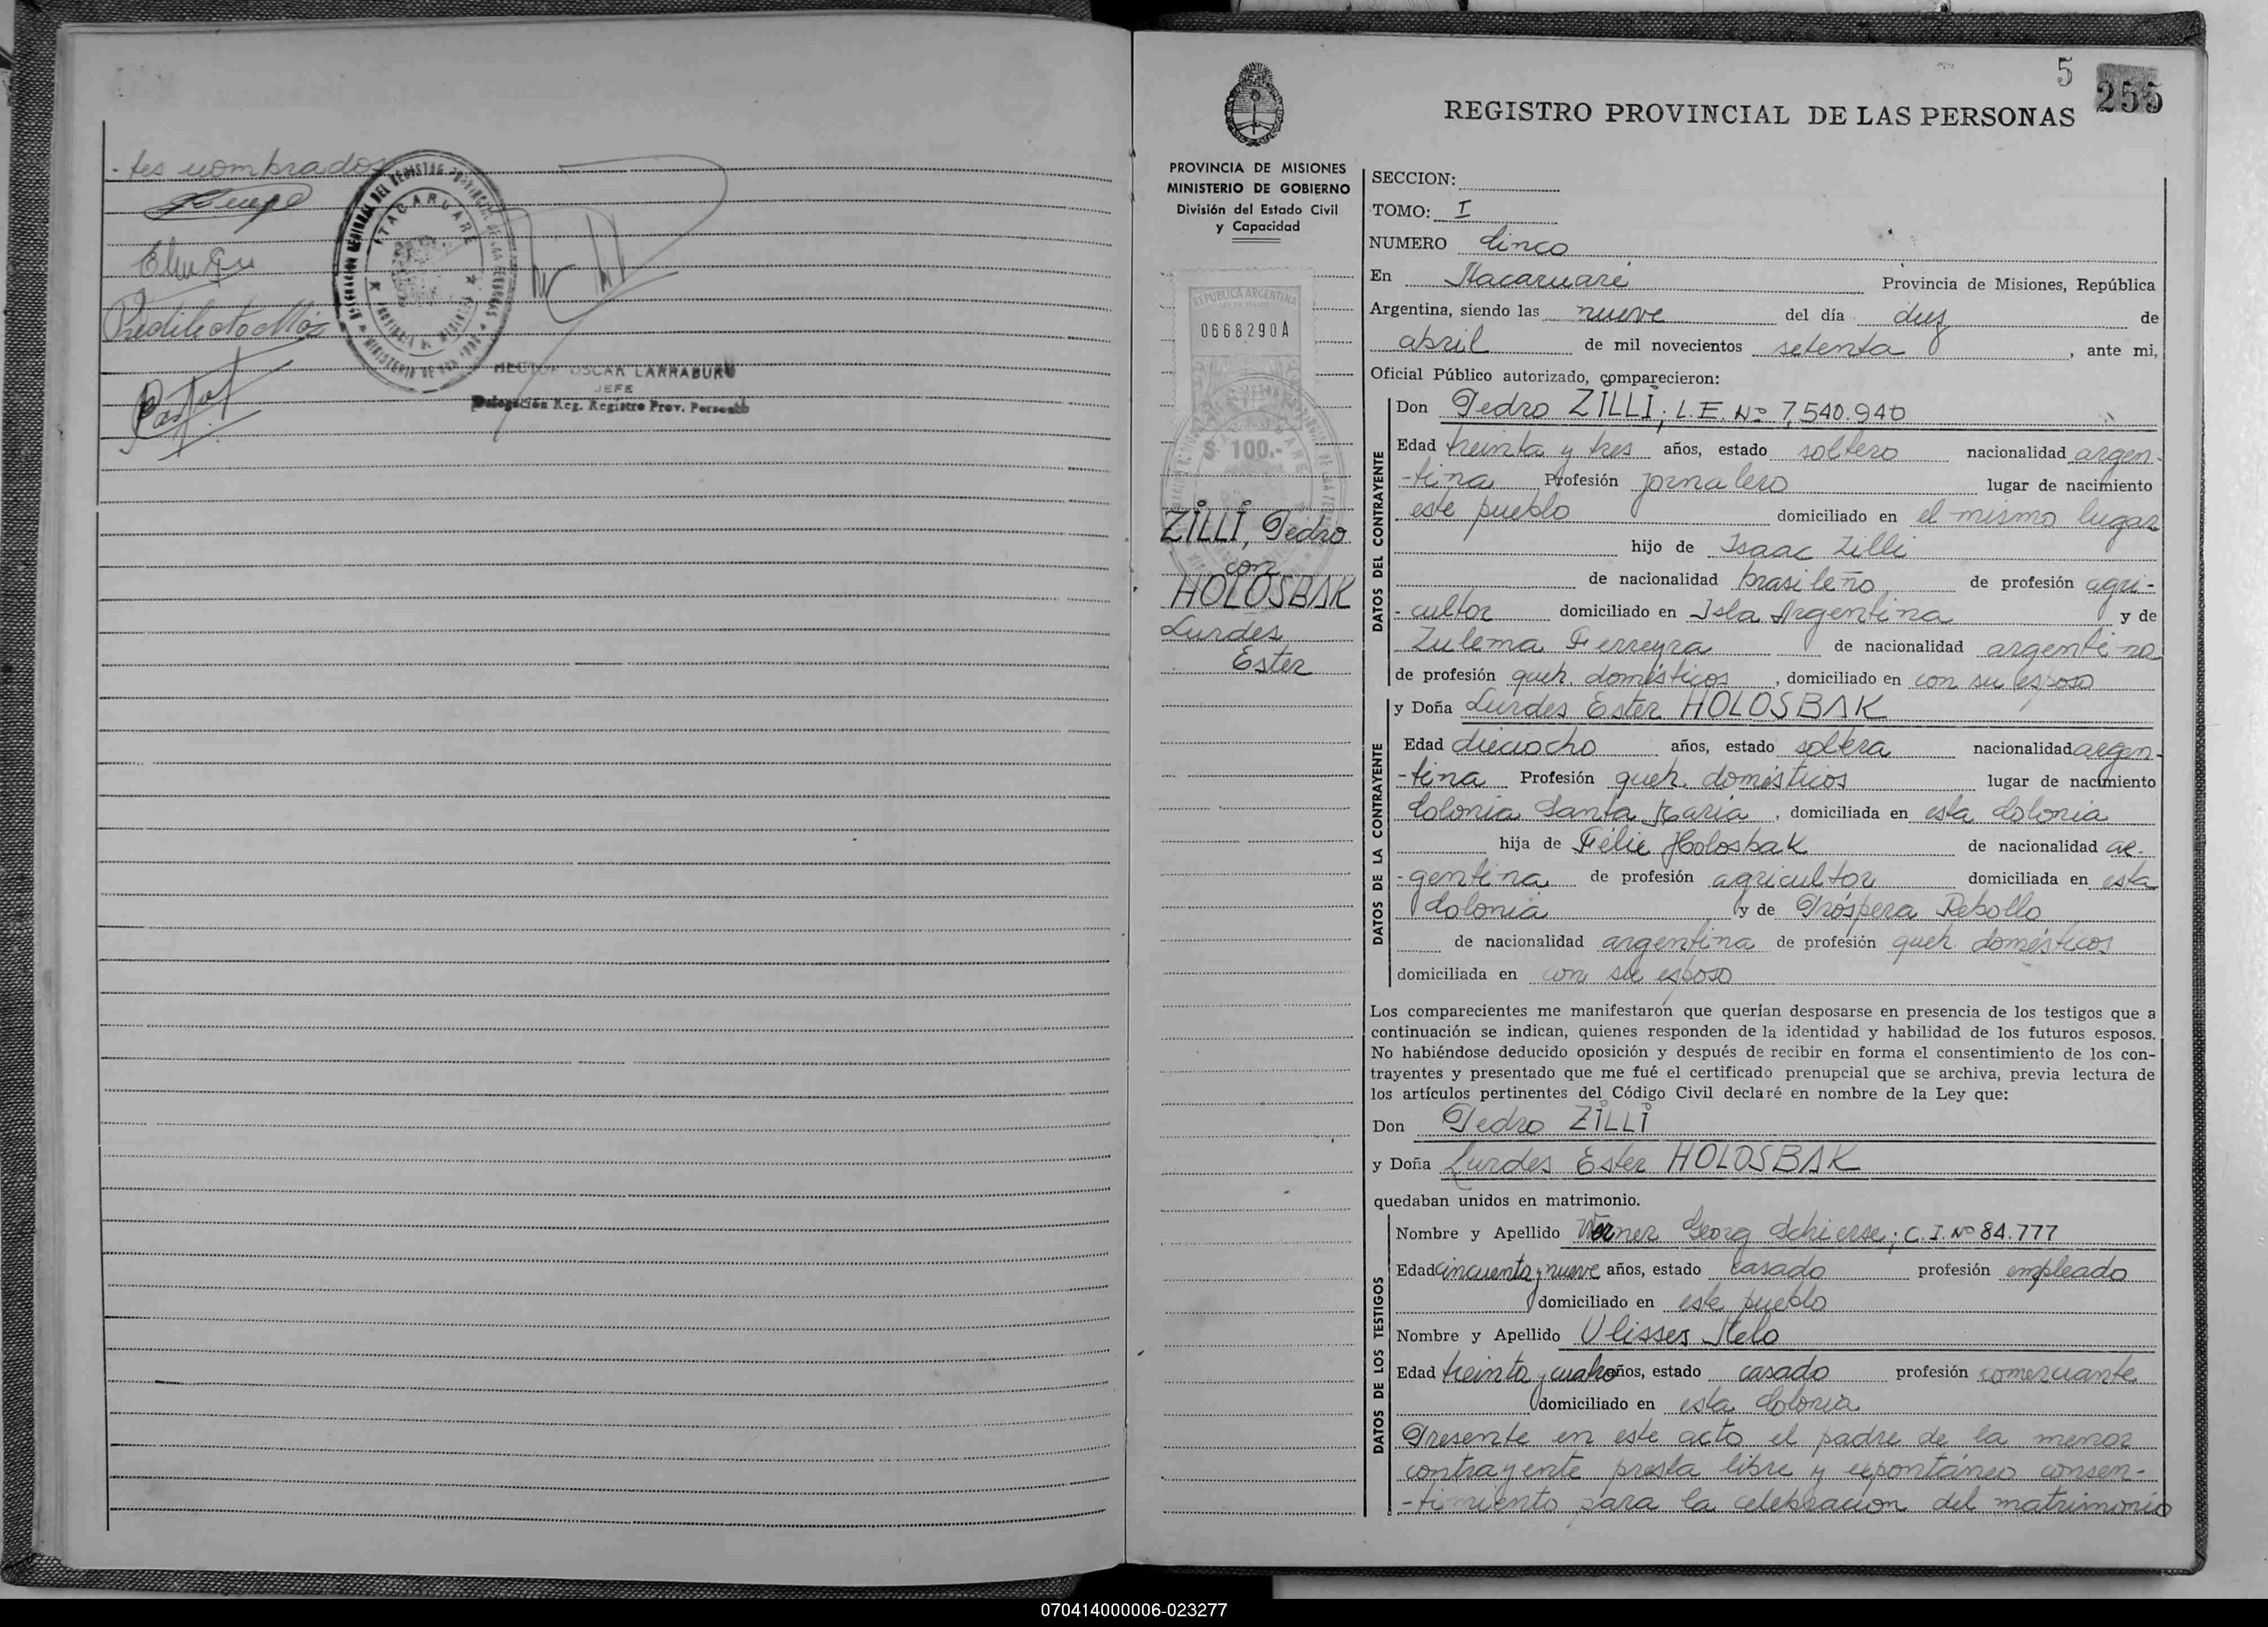 -tes nombrados
ITACARUARE
HECTOR OSCAR LARRABURU
JEFE
Delegación Reg. Registro Prov. Personas
5
255
REGISTRO PROVINCIAL DE LAS PERSONAS
PROVINCIA DE MISIONES
MINISTERIO DE GOBIERNO
División del Estado Civil
y Capacidad
REPUBLICA ARGENTINA
0668290A
$ 100.-
ZILLI, Pedro
con
HOLOSBAK
Lurdes
Ester
SECCION:
TOMO: I
NUMERO Cinco
En Itacaruaré Provincia de Misiones, República
Argentina, siendo las nueve del día diez de
abril de mil novecientos setenta, ante mi,
Oficial Público autorizado, comparecieron:
DATOS DEL CONTRAYENTE
Don Pedro ZILLI; L.E. Nº 7.540.940
Edad treinta y tres años, estado soltero nacionalidad argen-
-tina Profesión jornalero lugar de nacimiento
este pueblo domiciliado en el mismo lugar
hijo de Isaac Zilli
de nacionalidad brasileño de profesión agri-
-cultor domiciliado en Isla Argentina y de
Zulema Ferreyra de nacionalidad argentina
de profesión queh. domésticos, domiciliado en con su esposo
DATOS DE LA CONTRAYENTE
y Doña Lurdes Ester HOLOSBAK
Edad dieciocho años, estado soltera nacionalidad argen-
-tina Profesión queh. domésticos lugar de nacimiento
Colonia Santa María, domiciliada en esta Colonia
hija de Félix Holosbak de nacionalidad ar-
-gentina de profesión agricultor domiciliada en esta
Colonia y de Próspera Rebollo
de nacionalidad argentina de profesión queh. domésticos
domiciliada en con su esposo
Los comparecientes me manifestaron que querían desposarse en presencia de los testigos que a
continuación se indican, quienes responden de la identidad y habilidad de los futuros esposos.
No habiéndose deducido oposición y después de recibir en forma el consentimiento de los con-
trayentes y presentado que me fué el certificado prenupcial que se archiva, previa lectura de
los artículos pertinentes del Código Civil declaré en nombre de la Ley que:
Don Pedro ZILLI
y Doña Lurdes Ester HOLOSBAK
quedaban unidos en matrimonio.
DATOS DE LOS TESTIGOS
Nombre y Apellido Werner Georg Schierse; C.I. Nº 84.777
Edad cincuenta y nueve años, estado casado profesión empleado
domiciliado en este pueblo
Nombre y Apellido Ulisses Melo
Edad treinta y cuatro años, estado casado profesión comerciante
domiciliado en esta Colonia
Presente en este acto el padre de la menor
contrayente presta libre y expontáneo consen-
-timiento para la celebración del matrimonio
070414000006-023277